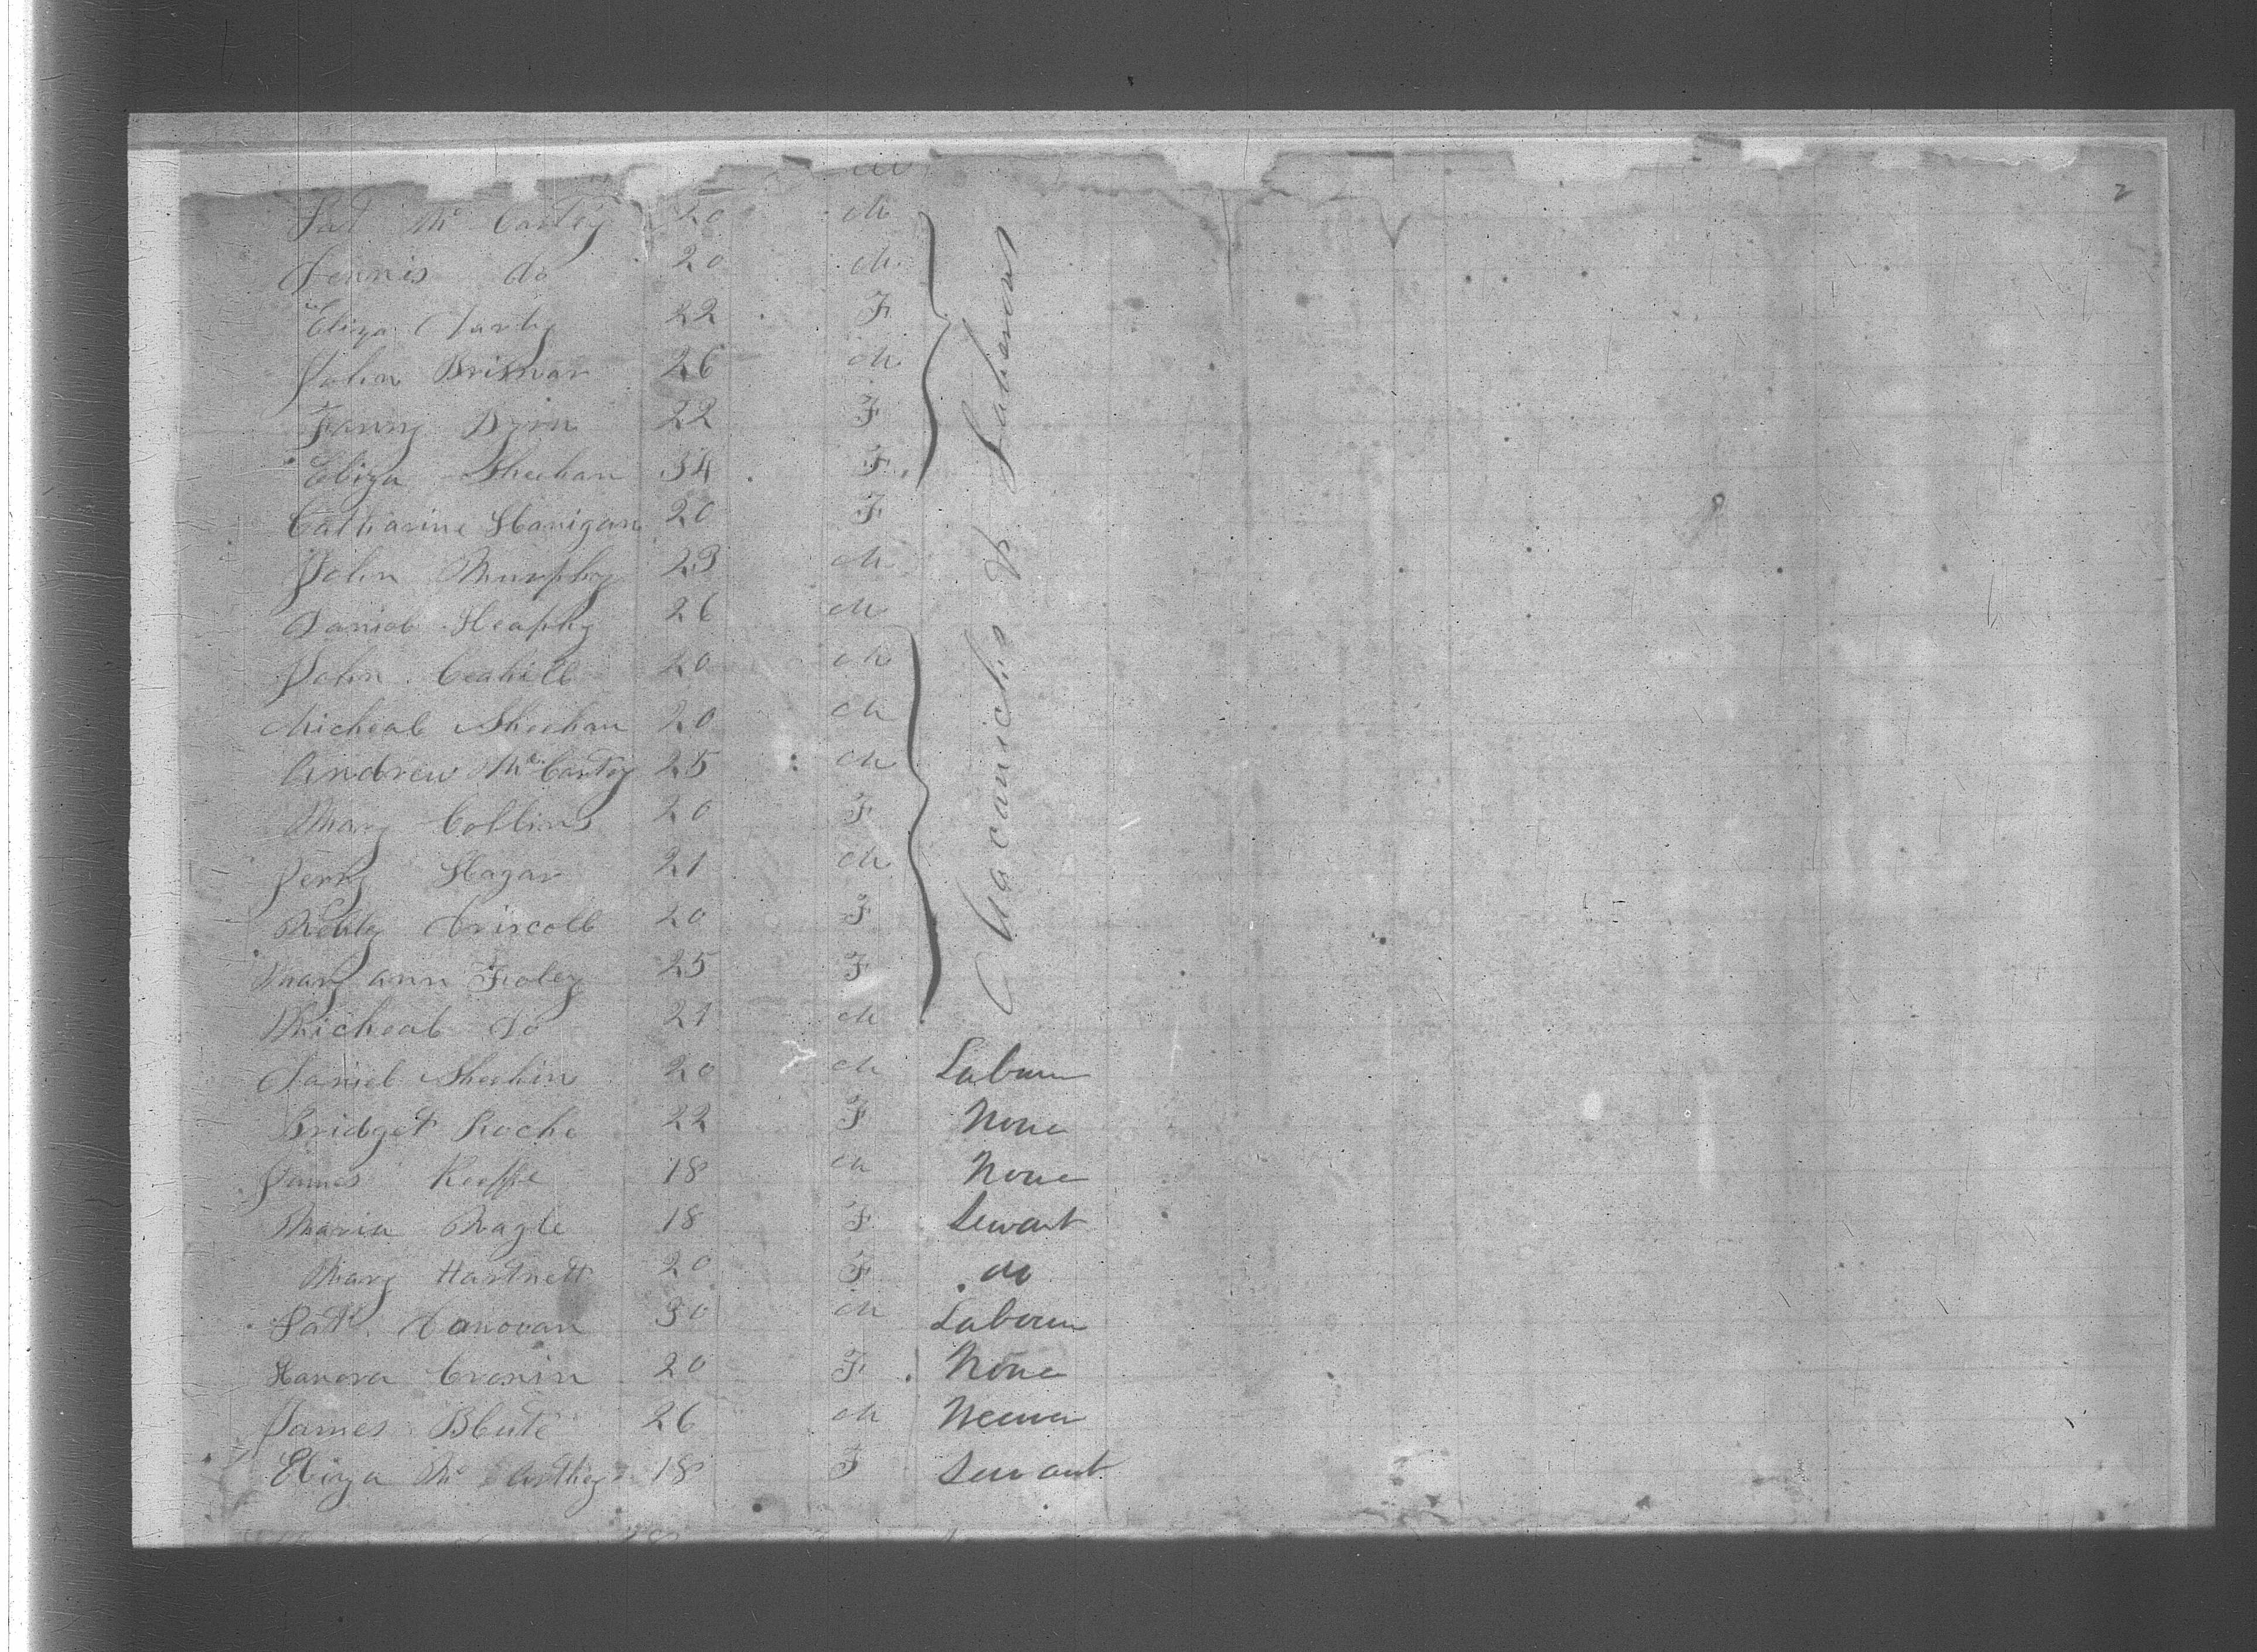 2
Pat Mc Cartey 20 M
Dennis do 20 M
Eliza Carty 22 F
John Brisnar 26 M
Fanny Dynn 22 F
Eliza Sheehan 34 F
Catharine Hanigan 20 F
John Murphy 23 M
Daniel Heaphy 26 M
John Ceahill 20 M
Micheal Sheehan 20 M
Andrew Mc Cartey 25 M
Mary Collins 20 F
Jerry Hagar 21 M
Driscoll 20 F
Mary ann Foley 25 F
Micheal Do 21 M
Mecanicks & Laberors
Daniel Sheehin 20 M Laborer
Bridget Roche 22 F None
James Keeffe 18 M None
Maria Nagle 18 F Servant
Mary Hartnett 20 F do
Pat Donovan 30 M Laborer
Hanora Cronin 20 F None
James Blute 26 M
Eliza Mc Carthey 18 F Servant